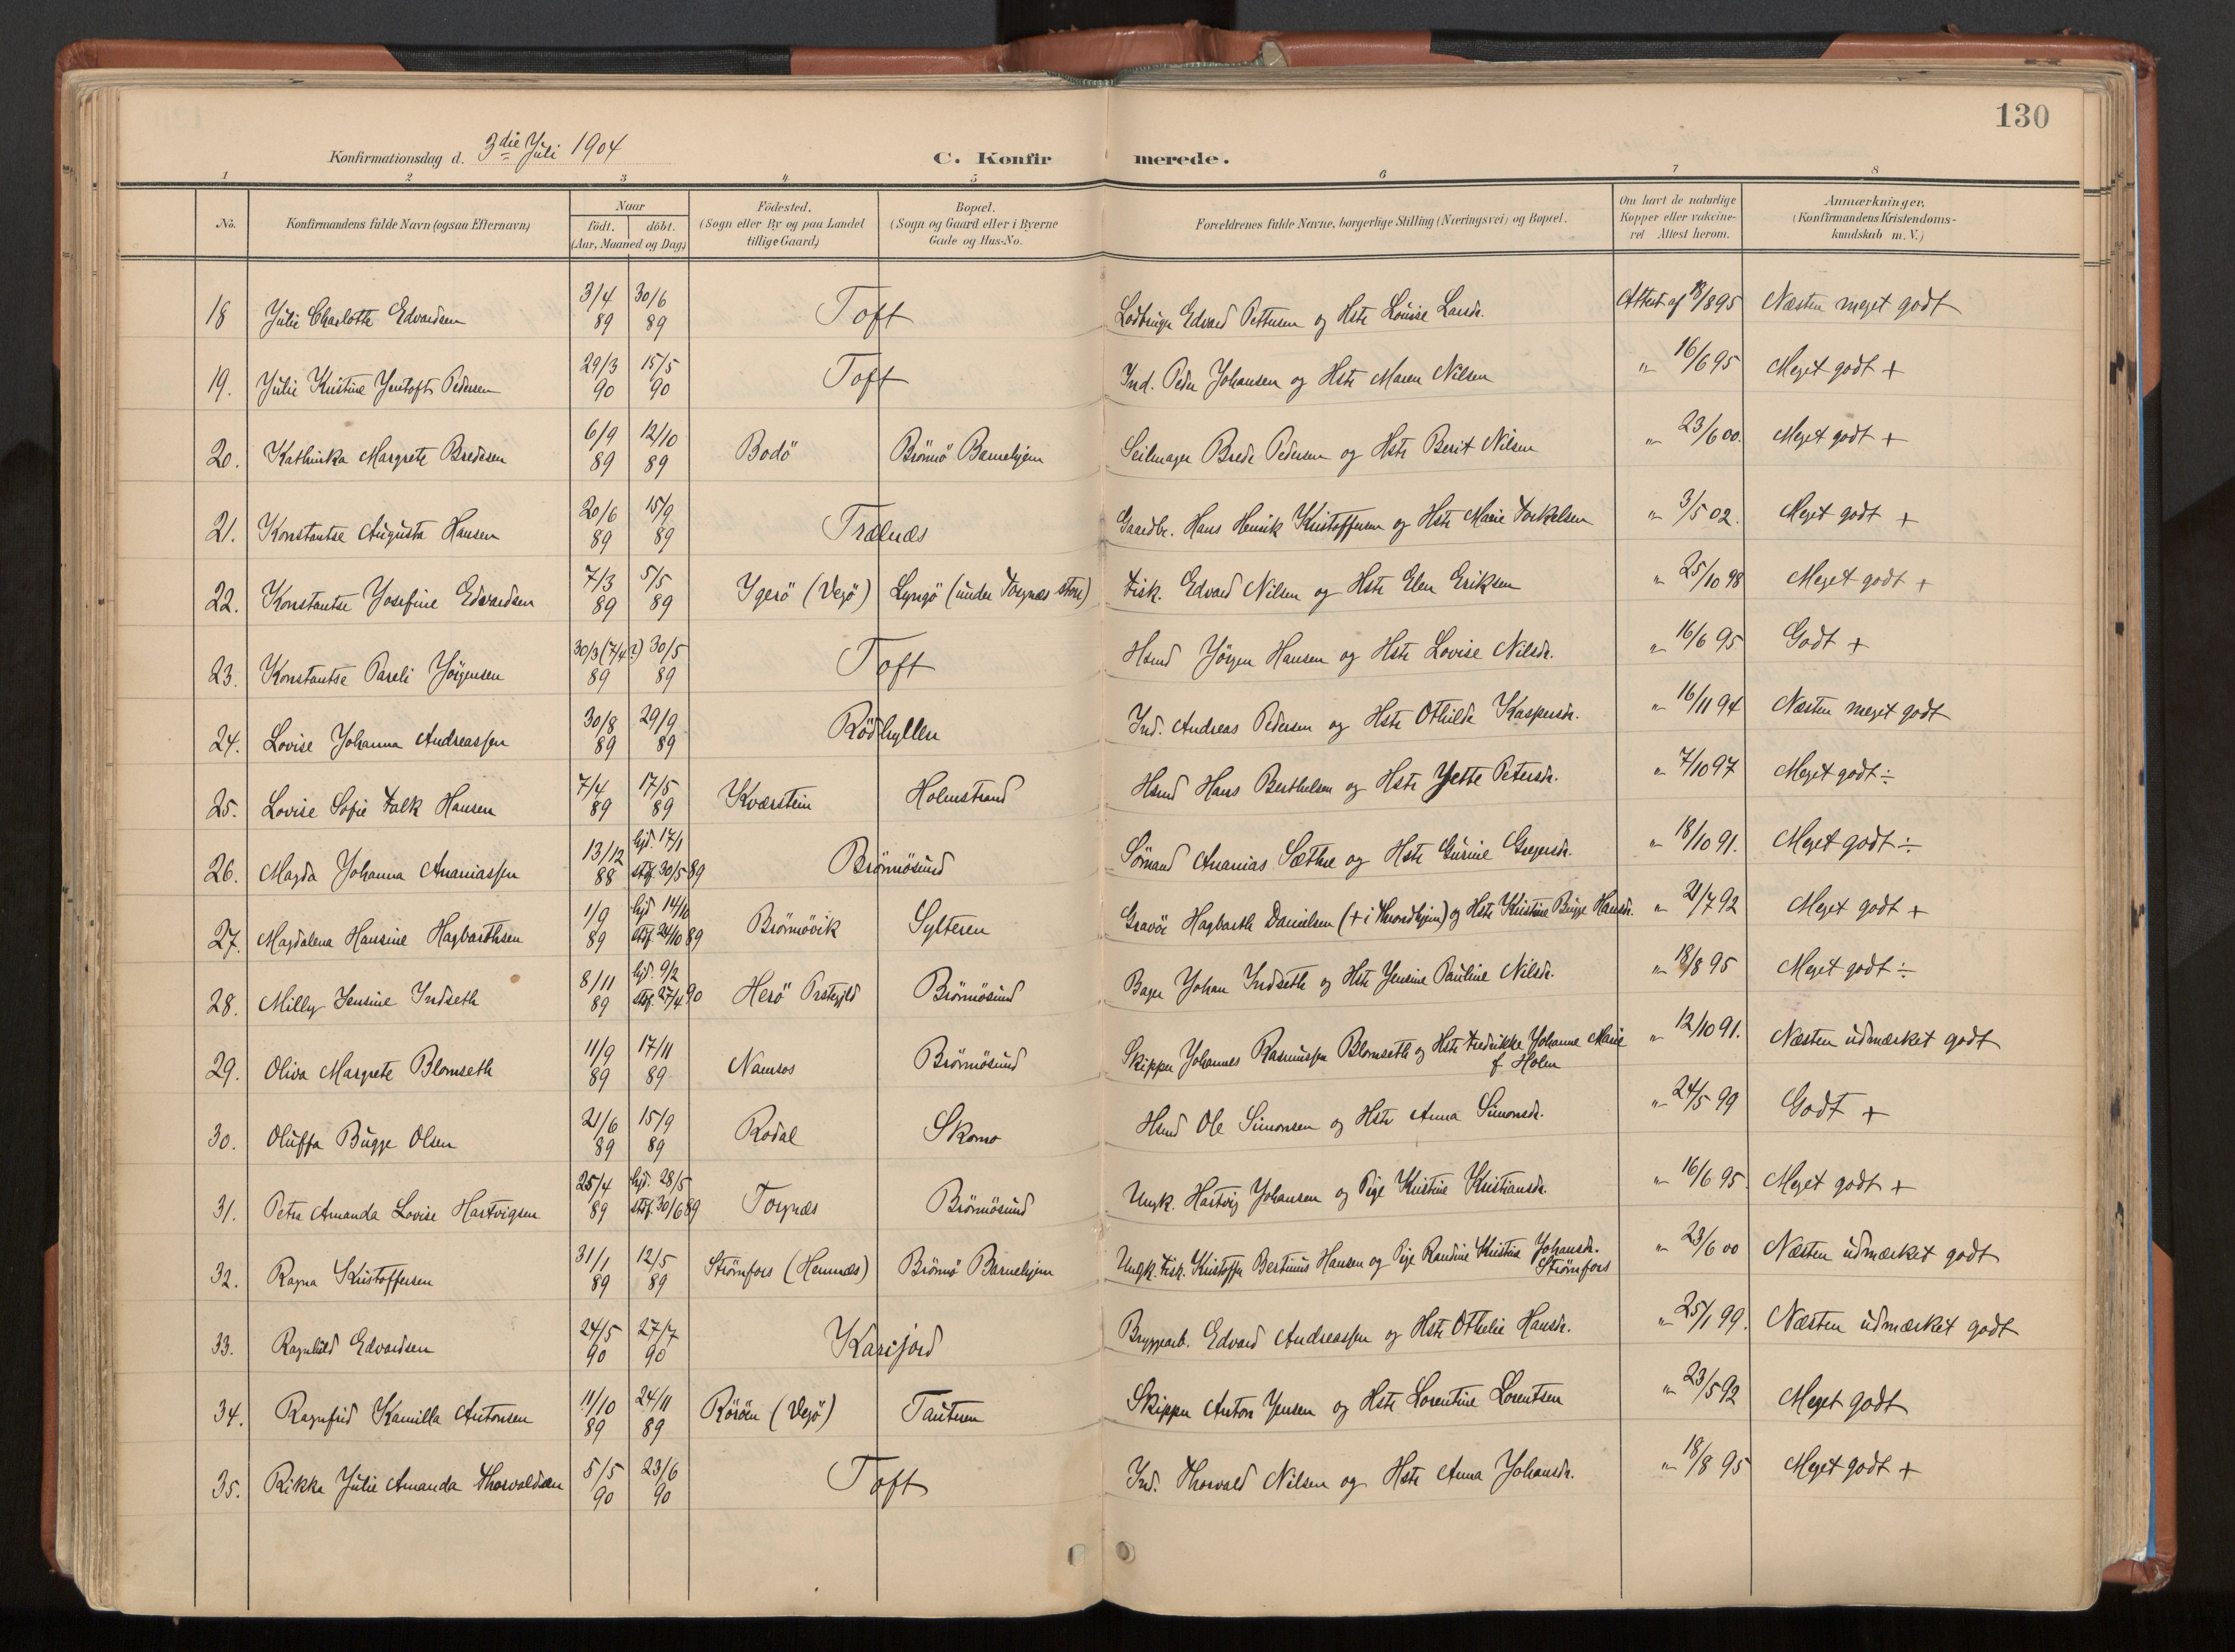 130
Konfirmationsdag d. 3die Juli 1904
C. Konfirmerede.
1 2 3 4 5 6 7 8
No. Konfirmandens fulde Navn (ogsaa Efternavn) Naar født. døbt. (Aar, Maaned og Dag) Fødested. (Sogn eller By og paa Landet tillige Gaard) Bopæl. (Sogn og Gaard eller i Byerne Gade og Hus-No. Forældrenes fulde Navne, borgerlige Stilling (Næringsvei) og Bopæl. Om havt de naturlige Kopper eller vakcineret Attest herom. Anmærkninger, (Konfirmandens Kristendomskundskab m. V.)
18 Julie Charlotte Edvardsen 3/4 89 30/6 89 Toft Edvard Pettersen og Hstr Louise Larsdr. Attest af 18/8 95 Næsten meget godt
19. Julie Kristine Jentoft Pedersen 29/3 90 15/5 90 Toft Ind. Peder Johansen og Hstr Maren Nilsen " 16/6 95 Meget godt +
20. Kathinka Margrete Bredesen 6/9 89 12/10 89 Bodö Brönnö Barnehjem Seilmager Brede Pedersen og Hstr Berit Nilsen " 23/6 00. Meget godt +
21. Konstantse Augusta Hansen 20/6 89 15/9 89 Trælnæs Gaardbr. Hans Henrik Kristoffersen og Hstr Marie Torkelsen " 3/5 02. Meget godt +
22. Konstantse Josefine Edvardsen 7/3 89 5/5 89 Ygerö (Vegö) Lyngö (under Torgnæs store) Fisk. Edvard Nilsen og Hstr Elen Eriksen " 25/10 98 Meget godt +
23. Konstantse Pareli Jörgensen 30/3 (7/4?) 89 30/5 89 Toft Hsmd Jörgen Hansen og Hstr Lovise Nilsdr. " 16/6 95 Godt +
24. Lovise Johanna Andreassen 30/8 89 29/9 89 Rödhyllen Ind. Andreas Pedersen og Hstr Othilde Kaspersdr. " 16/11 94 Næsten meget godt
25. Lovise Sofie Falk Hansen 7/4 89 17/5 89 Kværstein Holmstrand Hsmd Hans Berthelsen og Hstr Jette Petersdr. " 7/10 97 Meget godt ÷
26. Magda Johanna Ananiassen 13/12 88 hjd. 17/1 stdf. 30/5 89 Brönnösund Sömand Ananias Sæthre og Hstr Gurine Gregersdr. " 18/10 91. Meget godt ÷
27. Magdalena Hansine Hagbarthsen 1/9 89 hjd 14/10 stdf. 24/10 89 Brönnövik Sylteren Gravör Hagbarth Danielsen (+ i Throndhjem) og Hstr Kristine Bugge Hansdr. " 21/7 92 Meget godt +
28. Milly Jensine Indseth 8/11 89 hjd. 9/2 stdf. 27/4 90 Herö Prstgjld Brönnösund Bager Johan Indseth og Hstr Jensine Pauline Nilsdr. " 18/8 95 Meget godt ÷
29. Oliva Margrete Blomseth 11/9 89 17/11 89 Namsos Brönnösund Skipper Johannes Rasmussen Blomseth og Hstr Fredrikke Johanne Marie f. Holm " 12/10 91. Næsten udmærket godt
30. Oluffa Bugge Olsen 21/6 89 15/9 89 Rodal Skomo Hsmd Ole Simonsen og Hstr Anna Simonsdr. " 24/5 99 Godt +
31. Petra Amanda Lovise Hartvigsen 25/4 89 hjd. 28/5 stdf. 30/6 89 Torgnæs Brönnösund Ungk. Hartvig Johansen og Pige Kristine Kristiansdr. " 16/6 95. Meget godt +
32. Ragna Kristoffersen 31/1 89 12/5 89 Strömfors (Hemnæs) Brönnö Barnehjem Ungk. Fisk. Kristoffer Bertinus Hansen og Pige Randine Kristina Johansdr. Strömfors " 23/6 00 Næsten udmærket godt
33. Ragnhild Edvardsen 24/5 90 27/7 90 Karijord Bryggearb. Edvard Andreassen og Hstr Othelie Hansdr. " 25/1 99. Næsten udmærket godt
34. Ragnfrid Kamilla Antonsen 11/10 89 24/11 89 Röröen (Vegö) Tauteren Skipper Anton Jensen og Hstr Lorentine Lorentsen " 23/5 92 Meget godt
35. Rikka Julie Amanda Thorvaldsen 5/5 90 23/6 90 Toft Ind. Thorvald Nilsen og Hstr Anna Johansdr. " 18/8 95 Meget godt +